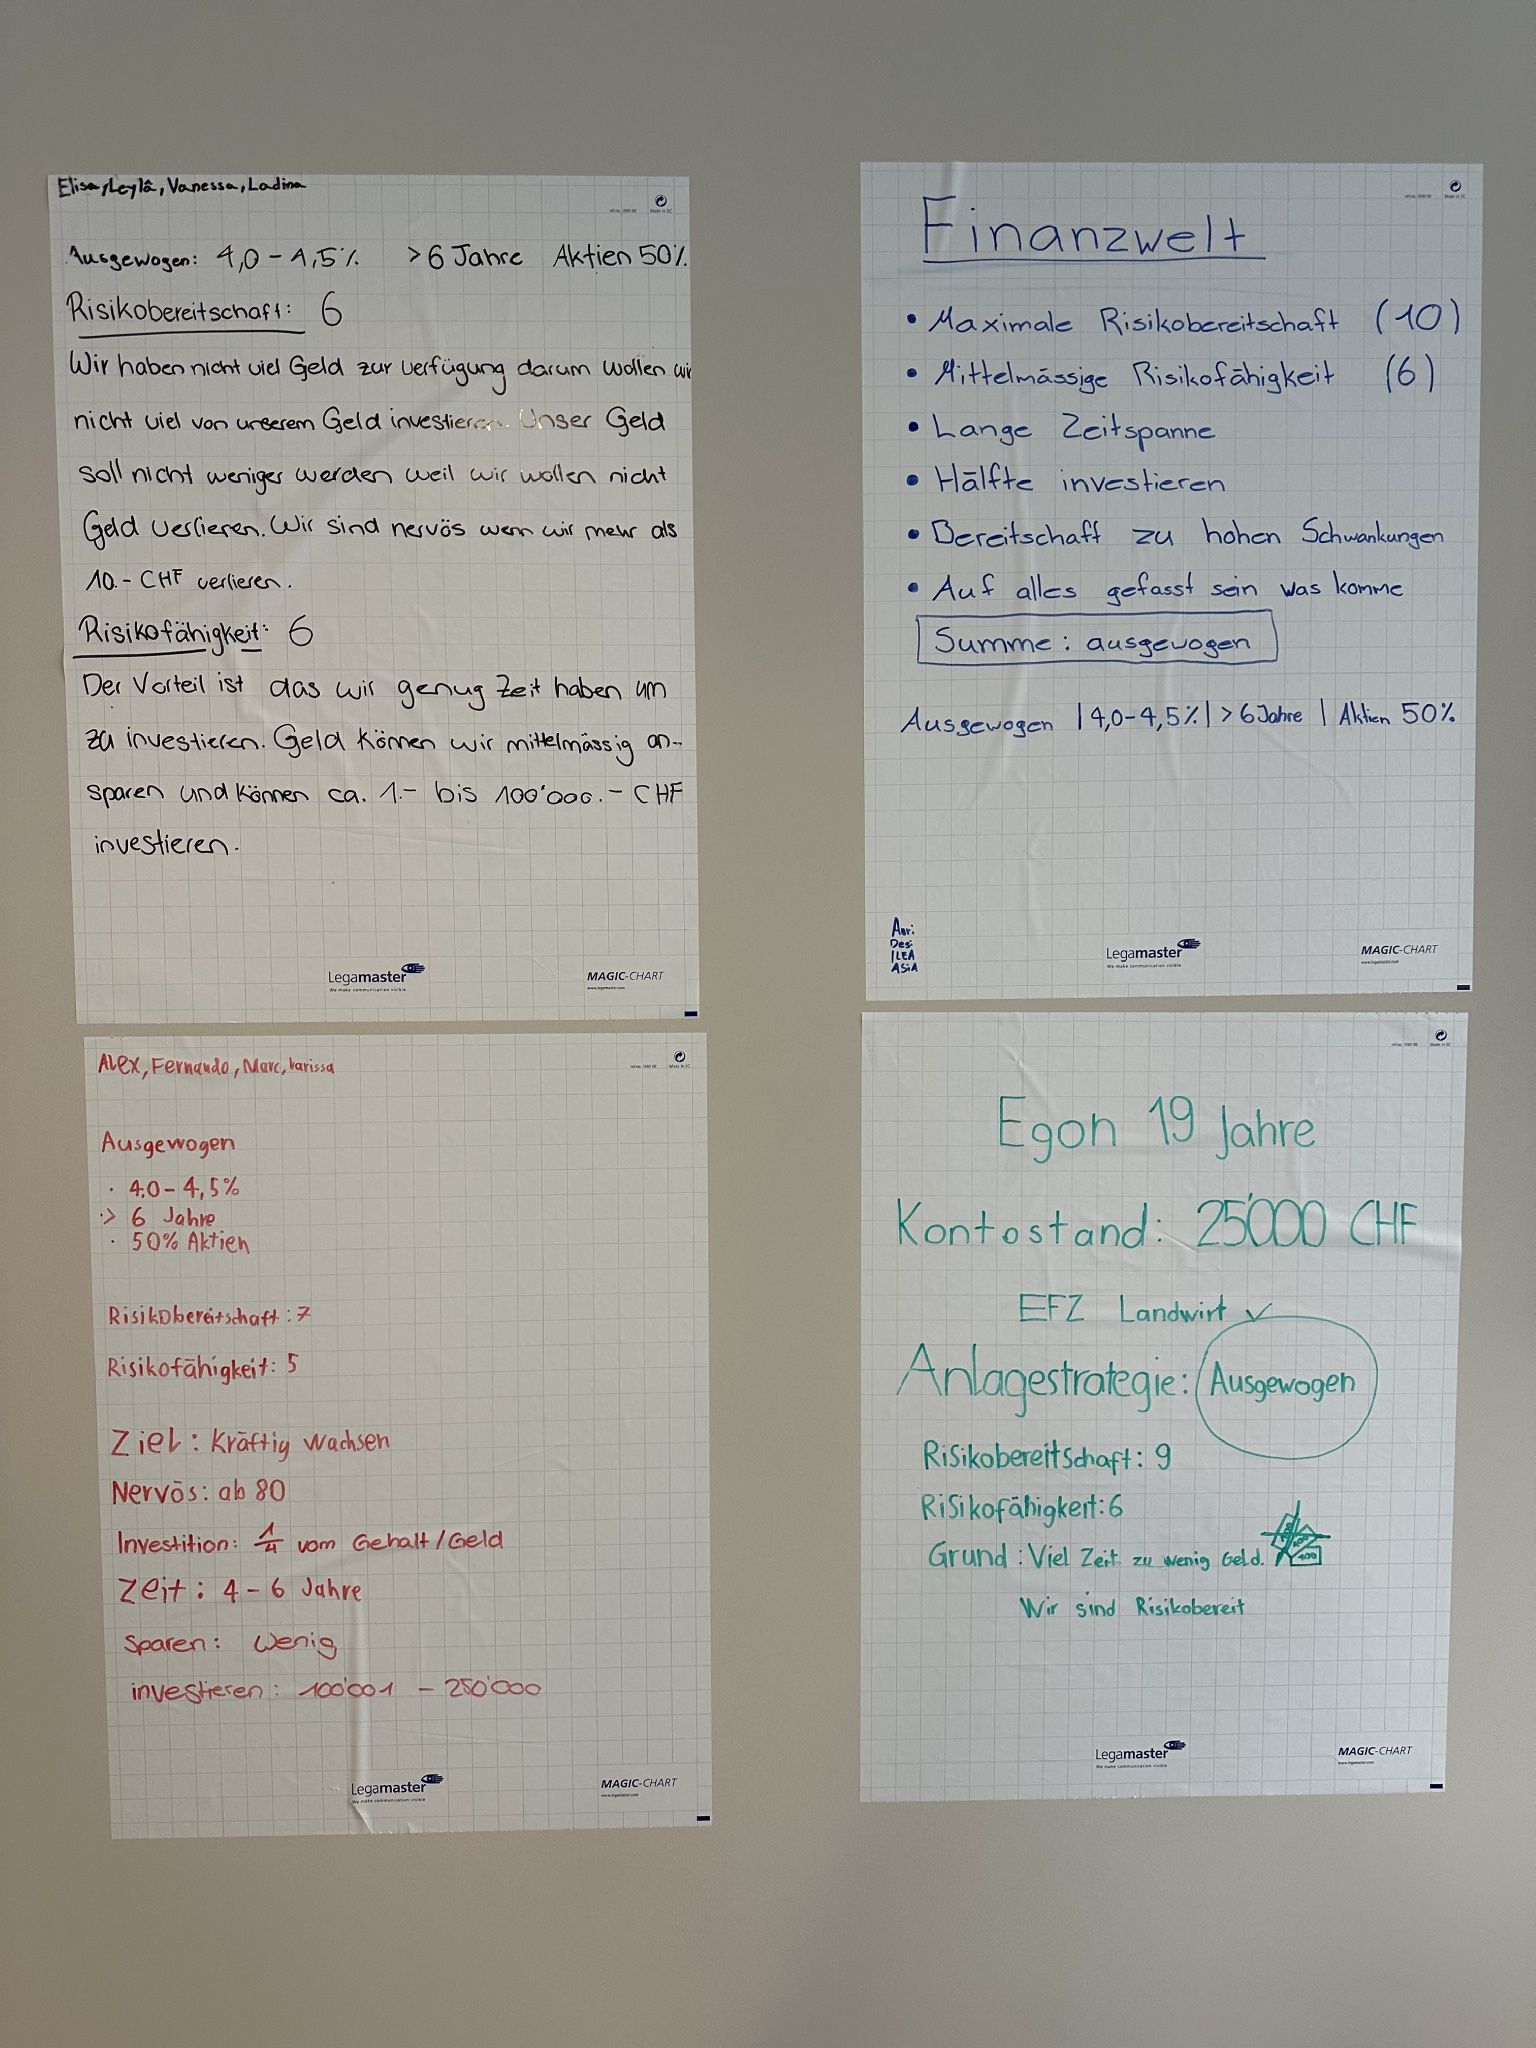 Elisa, Leylâ, Vanessa, Ladina
Made in EC
Ausgewogen: 4,0 - 4,5% >6 Jahre Aktien 50%
Risikobereitschaft: 6
Wir haben nicht viel Geld zur verfügung darum wollen wir
nicht viel von unserem Geld investieren. Unser Geld
soll nicht weniger werden weil wir wollen nicht
Geld verlieren. Wir sind nervös wenn wir mehr als
10.- CHF verlieren.
Risikofähigkeit: 6
Der Vorteil ist das wir genug Zeit haben um
zu investieren. Geld können wir mittelmässig an-
sparen und können ca. 1.- bis 100'000.- CHF
investieren.
Legamaster
We make communication visible
MAGIC-CHART
www.legamaster.com
Made in EC
Finanzwelt
• Maximale Risikobereitschaft (10)
• Mittelmässige Risikofähigkeit (6)
• Lange Zeitspanne
• Hälfte investieren
• Bereitschaft zu hohen Schwankungen
• Auf alles gefasst sein was komme
Summe: ausgewogen
Ausgewogen | 4,0-4,5% | >6 Jahre | Aktien 50%
Desi
ILEA
ASiA
Legamaster
We make communication visible
MAGIC-CHART
www.legamaster.com
Alex, Fernando, Marc, Larissa
Made in EC
Ausgewogen
· 4.0 - 4,5%
·> 6 Jahre
· 50% Aktien
Risikobereitschaft: 7
Risikofähigkeit: 5
Ziel: Kräftig wachsen
Nervös: ab 80
Investition: 1/4 vom Gehalt/Geld
Zeit: 4 - 6 Jahre
sparen: wenig
investieren: 100'001 - 250'000
Legamaster
We make communication visible
MAGIC-CHART
www.legamaster.com
Made in EC
Egon 19 Jahre
Kontostand: 25'000 CHF
EFZ Landwirt ✓
Anlagestrategie: Ausgewogen
Risikobereitschaft: 9
Risikofähigkeit: 6
Grund: Viel Zeit zu wenig Geld.
100
Wir sind Risikobereit
Legamaster
We make communication visible
MAGIC-CHART
www.legamaster.com